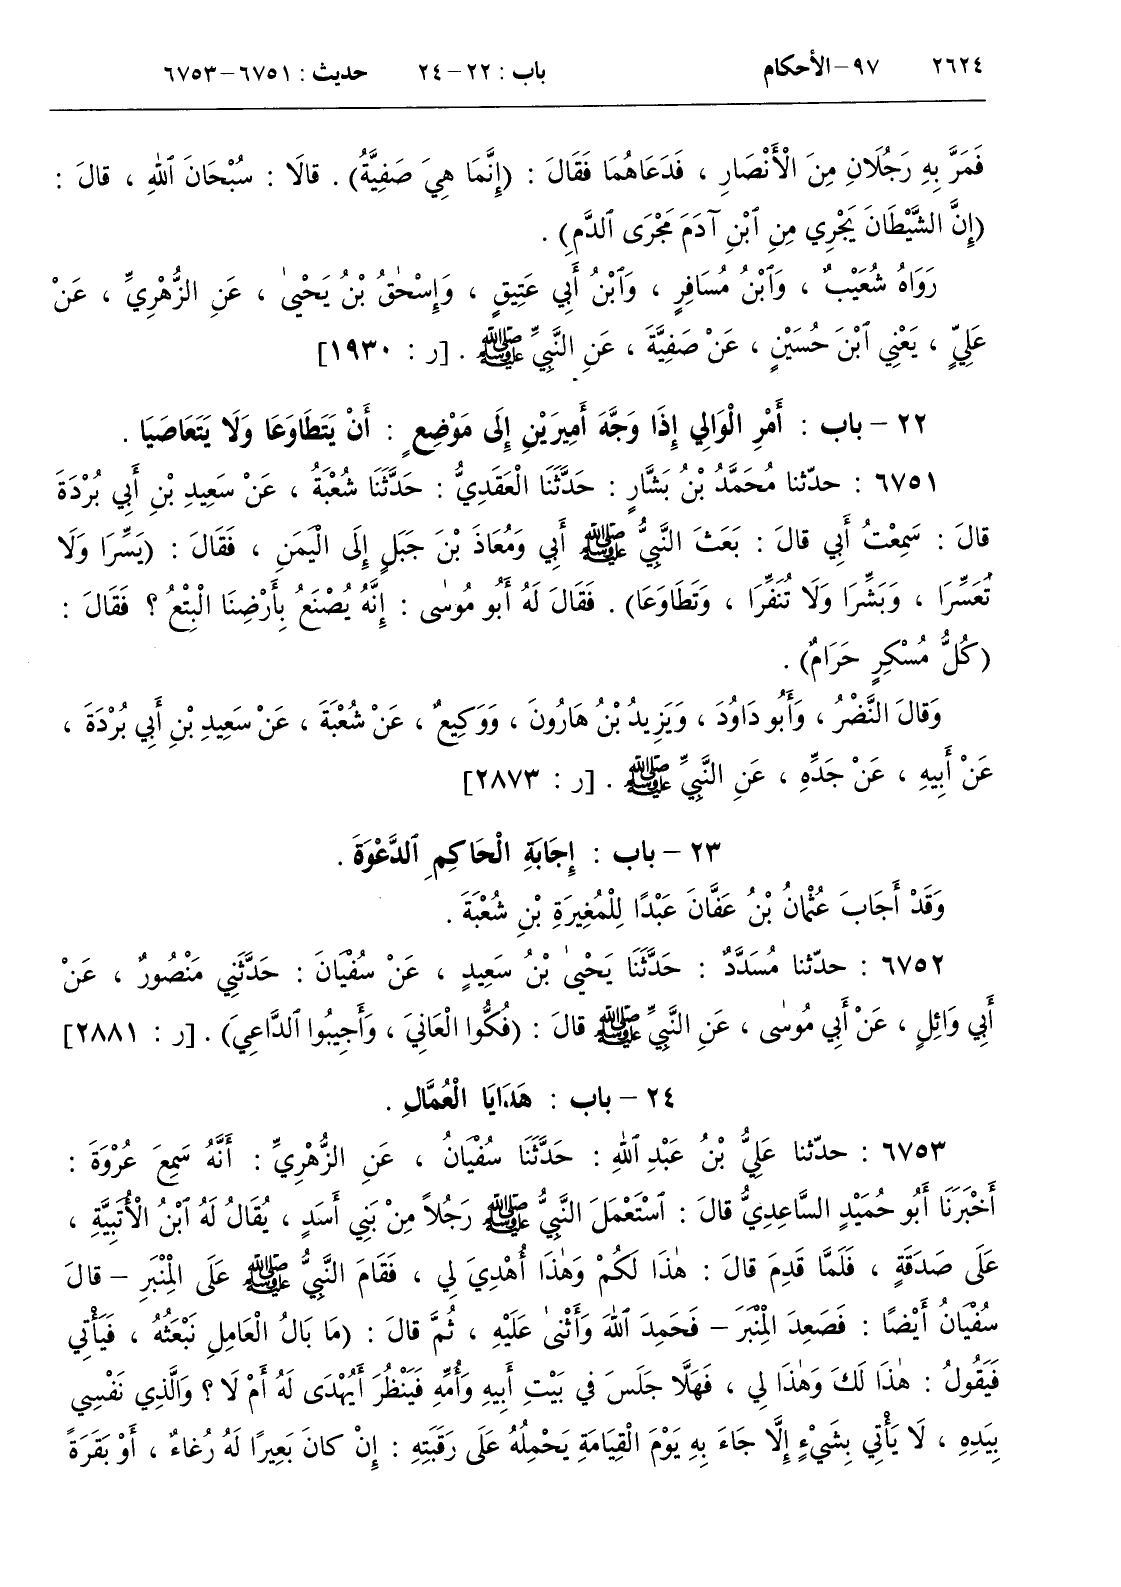 ٢٦٢٤ ٩٧ – الأحكام باب : ٢٢ – ٢٤ حديث : ٦٧٥١ – ٦٧٥٣
فَمَرَّ بِهِ رَجُلَانِ مِنَ الْأَنْصَارِ ، فَدَعَاهُمَا فَقَالَ : (إِنَّمَا هِيَ صَفِيَّةُ) . قالَا : سُبْحَانَ ٱللهِ ، قالَ :
(إِنَّ الشَّيْطَانَ يَجْرِي مِنِ ٱبْنِ آدَمَ مَجْرَى ٱلدَّمِ) .
رَوَاهُ شُعَيْبٌ ، وَٱبْنُ مُسَافِرٍ ، وَٱبْنُ أَبِي عَتِيقٍ ، وَإِسْحٰقُ بْنُ يَحْيىٰ ، عَنِ الزُّهْرِيِّ ، عَنْ
عَلِيٍّ ، يَعْنِي ٱبْنَ حُسَيْنٍ ، عَنْ صَفِيَّةَ ، عَنِ النَّبِيِّ ﷺ . [ر : ١٩٣٠]
٢٢ – باب : أَمْرِ الْوَالِي إِذَا وَجَّهَ أَمِيرَيْنِ إِلَى مَوْضِعٍ : أَنْ يَتَطَاوَعَا وَلَا يَتَعَاصَيَا .
٦٧٥١ : حدّثنا مُحَمَّدُ بْنُ بَشَّارٍ : حَدَّثَنَا الْعَقَدِيُّ : حَدَّثَنَا شُعْبَةُ ، عَنْ سَعِيدِ بْنِ أَبِي بُرْدَةَ
قالَ : سَمِعْتُ أَبِي قالَ : بَعَثَ النَّبِيُّ ﷺ أَبِي وَمُعَاذَ بْنَ جَبَلٍ إِلَى الْيَمَنِ ، فَقَالَ : (يَسِّرَا وَلَا
تُعَسِّرَا ، وَبَشِّرَا وَلَا تُنَفِّرَا ، وَتَطَاوَعَا) . فَقَالَ لَهُ أَبُو مُوسٰى : إِنَّهُ يُصْنَعُ بِأَرْضِنَا الْبِتْعُ ؟ فَقَالَ :
(كُلُّ مُسْكِرٍ حَرَامٌ) .
وَقالَ النَّضْرُ ، وَأَبُو دَاوُدَ ، وَيَزِيدُ بْنُ هَارُونَ ، وَوَكِيعٌ ، عَنْ شُعْبَةَ ، عَنْ سَعِيدِ بْنِ أَبِي بُرْدَةَ ،
عَنْ أَبِيهِ ، عَنْ جَدِّهِ ، عَنِ النَّبِيِّ ﷺ . [ر : ٢٨٧٣]
٢٣ – باب : إِجَابَةِ الْحَاكِمِ ٱلدَّعْوَةَ .
وَقَدْ أَجَابَ عُثْمانُ بْنُ عَفَّانَ عَبْدًا لِلْمُغِيرَةِ بْنِ شُعْبَةَ .
٦٧٥٢ : حدّثنا مُسَدَّدٌ : حَدَّثَنَا يَحْيىٰ بْنُ سَعِيدٍ ، عَنْ سُفْيَانَ : حَدَّثَنِي مَنْصُورٌ ، عَنْ
أَبِي وَائِلٍ ، عَنْ أَبِي مُوسٰى ، عَنِ النَّبِيِّ ﷺ قالَ : (فُكُّوا الْعَانِيَ ، وَأَجِيبُوا ٱلدَّاعِيَ) . [ر : ٢٨٨١]
٢٤ – باب : هَدَايَا الْعُمَّالِ .
٦٧٥٣ : حدّثنا عَلِيُّ بْنُ عَبْدِ ٱللهِ : حَدَّثَنَا سُفْيَانُ ، عَنِ الزُّهْرِيِّ : أَنَّهُ سَمِعَ عُرْوَةَ :
أَخْبَرَنَا أَبُو حُمَيْدٍ السَّاعِدِيُّ قالَ : ٱسْتَعْمَلَ النَّبِيُّ ﷺ رَجُلاً مِنْ بَنِي أَسَدٍ ، يُقَالُ لَهُ ٱبْنُ الْأُتَبِيَّةِ ،
عَلَى صَدَقَةٍ ، فَلَمَّا قَدِمَ قالَ : هٰذَا لَكُمْ وَهٰذَا أُهْدِيَ لِي ، فَقَامَ النَّبِيُّ ﷺ عَلَى الْمِنْبَرِ – قالَ
سُفْيَانُ أَيْضًا : فَصَعِدَ الْمِنْبَرَ – فَحَمِدَ ٱللهَ وَأَثْنىٰ عَلَيْهِ ، ثُمَّ قالَ : (مَا بَالُ الْعَامِلِ نَبْعَثُهُ ، فَيَأْتِي
فَيَقُولُ : هٰذَا لَكَ وَهٰذَا لِي ، فَهَلَّا جَلَسَ في بَيْتِ أَبِيهِ وَأُمِّهِ فَيَنْظُرَ أَيُهْدَى لَهُ أَمْ لَا ؟ وَالَّذِي نَفْسِي
بِيَدِهِ ، لَا يَأْتِي بِشَيْءٍ إِلَّا جَاءَ بِهِ يَوْمَ الْقِيَامَةِ يَحْمِلُهُ عَلَى رَقَبَتِهِ : إِنْ كانَ بَعِيرًا لَهُ رُغاءٌ ، أَوْ بَقَرَةً